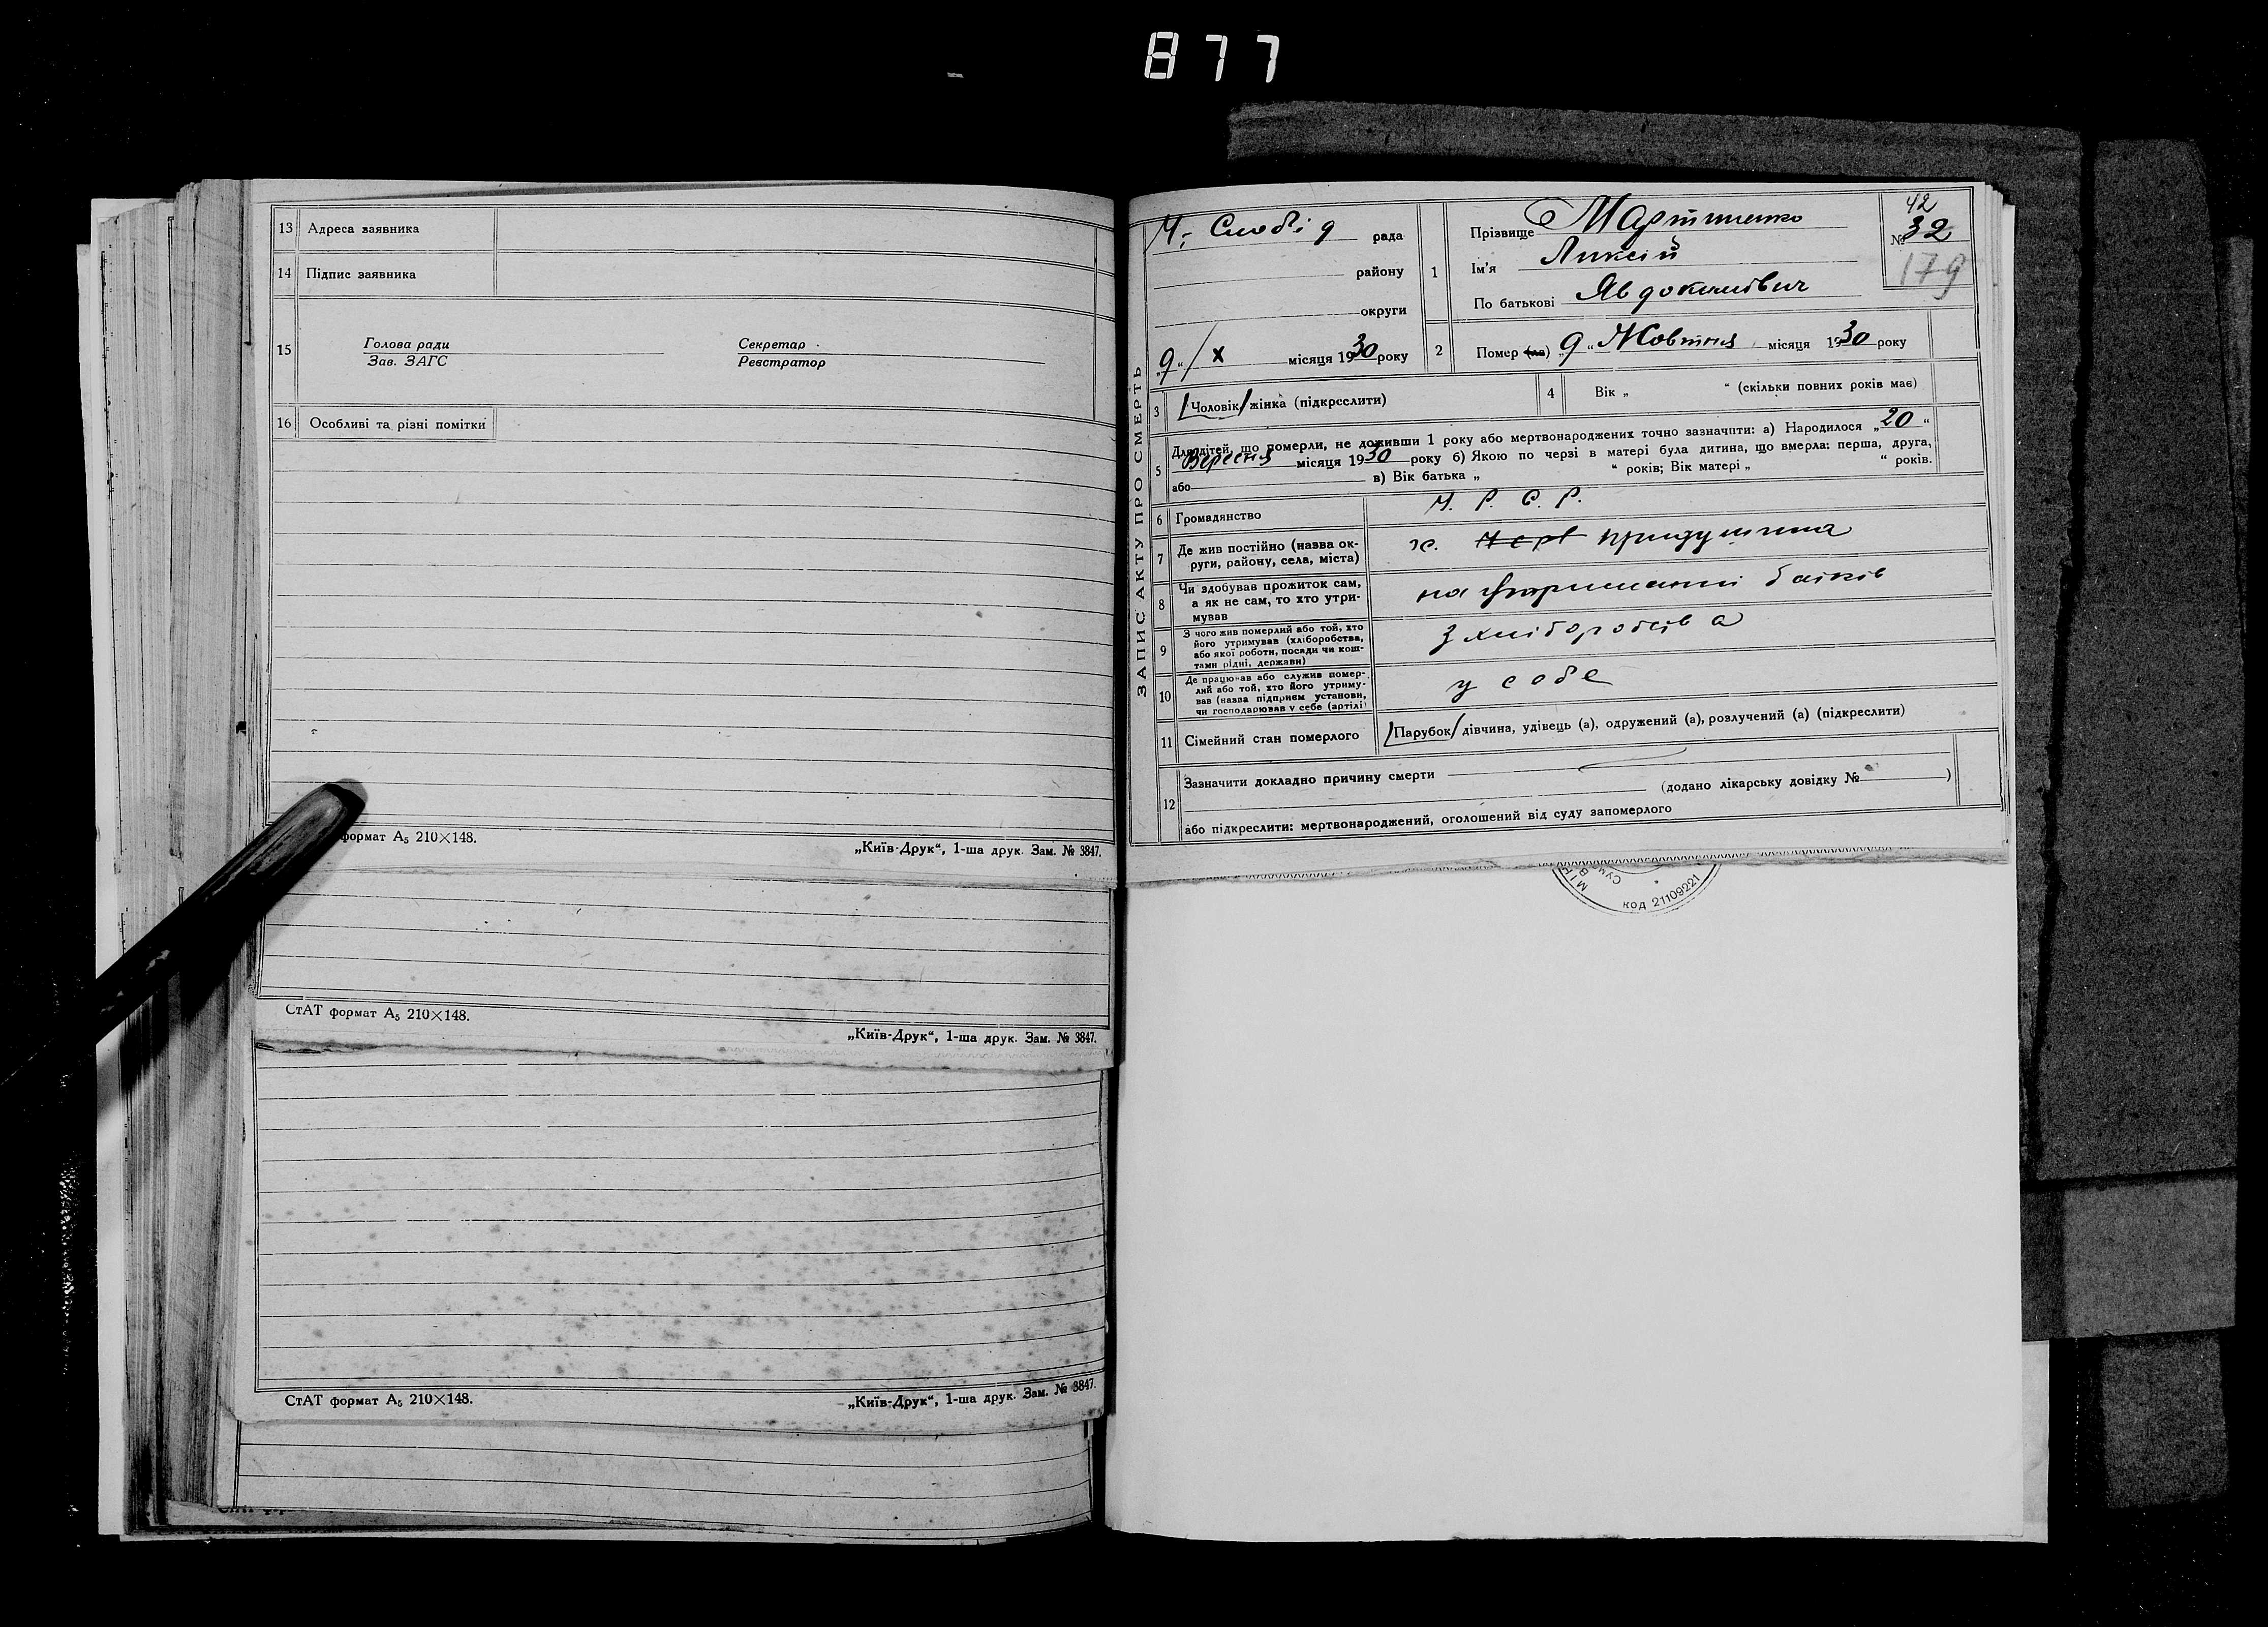 877
13 Адреса заявника
14 Підпис заявника
15 Голова ради Секретар
Зав. ЗАГС Реєстратор
16 Особливі та різні помітки
формат А5 210×148.
„Київ-Друк“, 1-ша друк. Зам. № 3847.
СтАТ формат А5 210×148.
„Київ-Друк“, 1-ша друк. Зам. № 3847.
СтАТ формат А5 210×148.
„Київ-Друк“, 1-ша друк. Зам. № 3847.
ЗАПИС АКТУ ПРО СМЕРТЬ
Ч. Слобід рада
району
округи
„9“/X місяця 1930 року
1 Прізвище Мартиненко
Ім'я Ликсій
По батькові Явдокимович
42
№ 32
179
2 Помер (ла) „9“ Жовтня місяця 1930 року
3 Чоловік/жінка (підкреслити)
4 Вік „ “ (скільки повних років має)
5 Для дітей, що померли, не доживши 1 року або мертвонароджених точно зазначити: а) Народилося „20“
Вересня місяця 1930 року б) Якою по черзі в матері була дитина, що вмерла: перша, друга,
або в) Вік батька „ “ років; Вік матері „ “ років.
6 Громадянство У. Р. С. Р.
7 Де жив постійно (назва ок-
руги, району, села, міста)
х.
8 Чи здобував прожиток сам,
а як не сам, то хто утри-
мував
на утриманні батків
9 З чого жив померлий або той, хто
його утримував (хліборобства,
або якої роботи, посади чи кош-
тами рідні, держави)
з хліборобства
10 Де працював або служив помер-
лий або той, хто його утриму-
вав (назва підприєм установи,
чи господарював у себе (артілі)
у себе
11 Сімейний стан померлого Парубок/дівчина, удівець (а), одружений (а), розлучений (а) (підкреслити)
12 Зазначити докладно причину смерти
(додано лікарську довідку № )
або підкреслити: мертвонароджений, оголошений від суду запомерлого
код 21109221